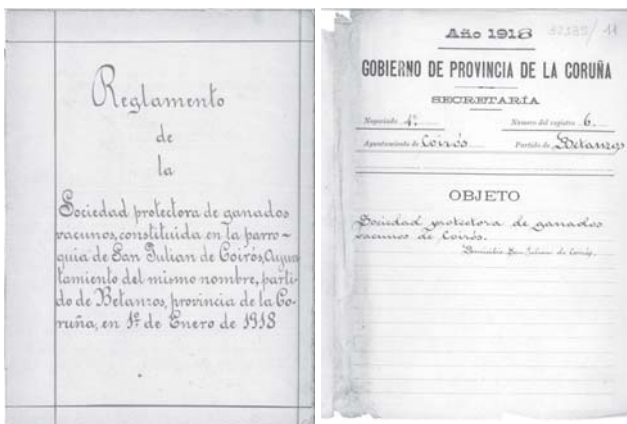 Reglamento
de
la
Sociedad protectora de ganados
vacunos, constituida en la parro-
quia de San Julian de Coirós, Ayun
tamiento del mismo nombre, parti-
do de Betanzos, provincia de la Co-
ruña, en 1º de Enero de 1918
Año 1918
GOBIERNO DE PROVINCIA DE LA CORUÑA
SECRETARÍA
Negociado 4º Número del registro 6.
Ayuntamiento de Coirós Partido de Betanzos
OBJETO
Sociedad protectora de ganados
vacunos de Coirós.
Domicilio San Julian de Coirós.